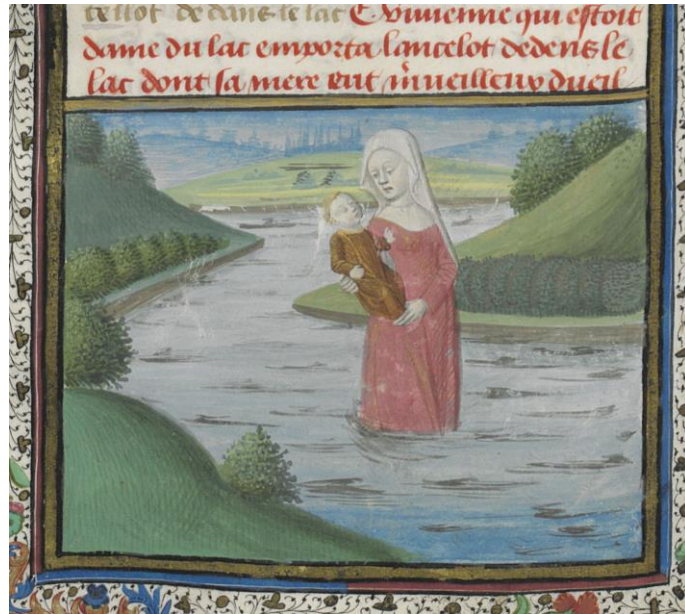 cellot de dans le lac C Viuienne qui estoit
dame du lac emporta lancelot dedens le
lac dont sa mere eut m̃ueilleux dueil